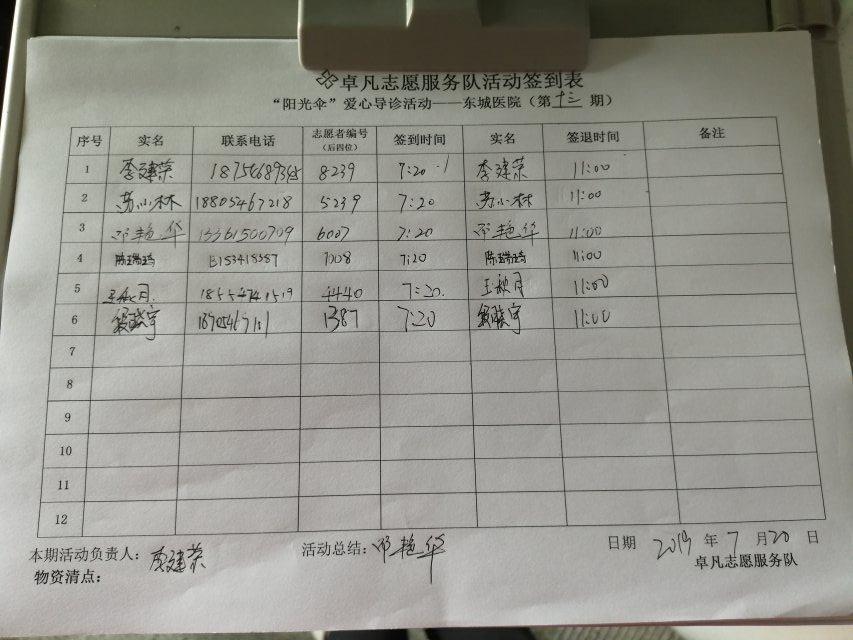 卓凡志愿服务队活动签到表
“阳光伞”爱心导诊活动——东城医院（第十三期）
序号 实名 联系电话 志愿者编号（后四位） 签到时间 实名 签退时间 备注
1 李建荣 8239 7:20 李建荣 11:00
2 苏小林 18805467218 5239 7:20 苏小林 11:00
3 邓艳华 13361500709 6007 7:20 邓艳华 11:00
4 陈瑞琦 7008 7:20 陈瑞琦 11:00
5 王秋月 18554741519 4440 7:20 王秋月 11:00
6 1387 7:20 11:00
7
8
9
10
11
12
本期活动负责人： 建荣 活动总结：邓艳华 日期 2019 年 7 月 20 日
物资清点： 卓凡志愿服务队